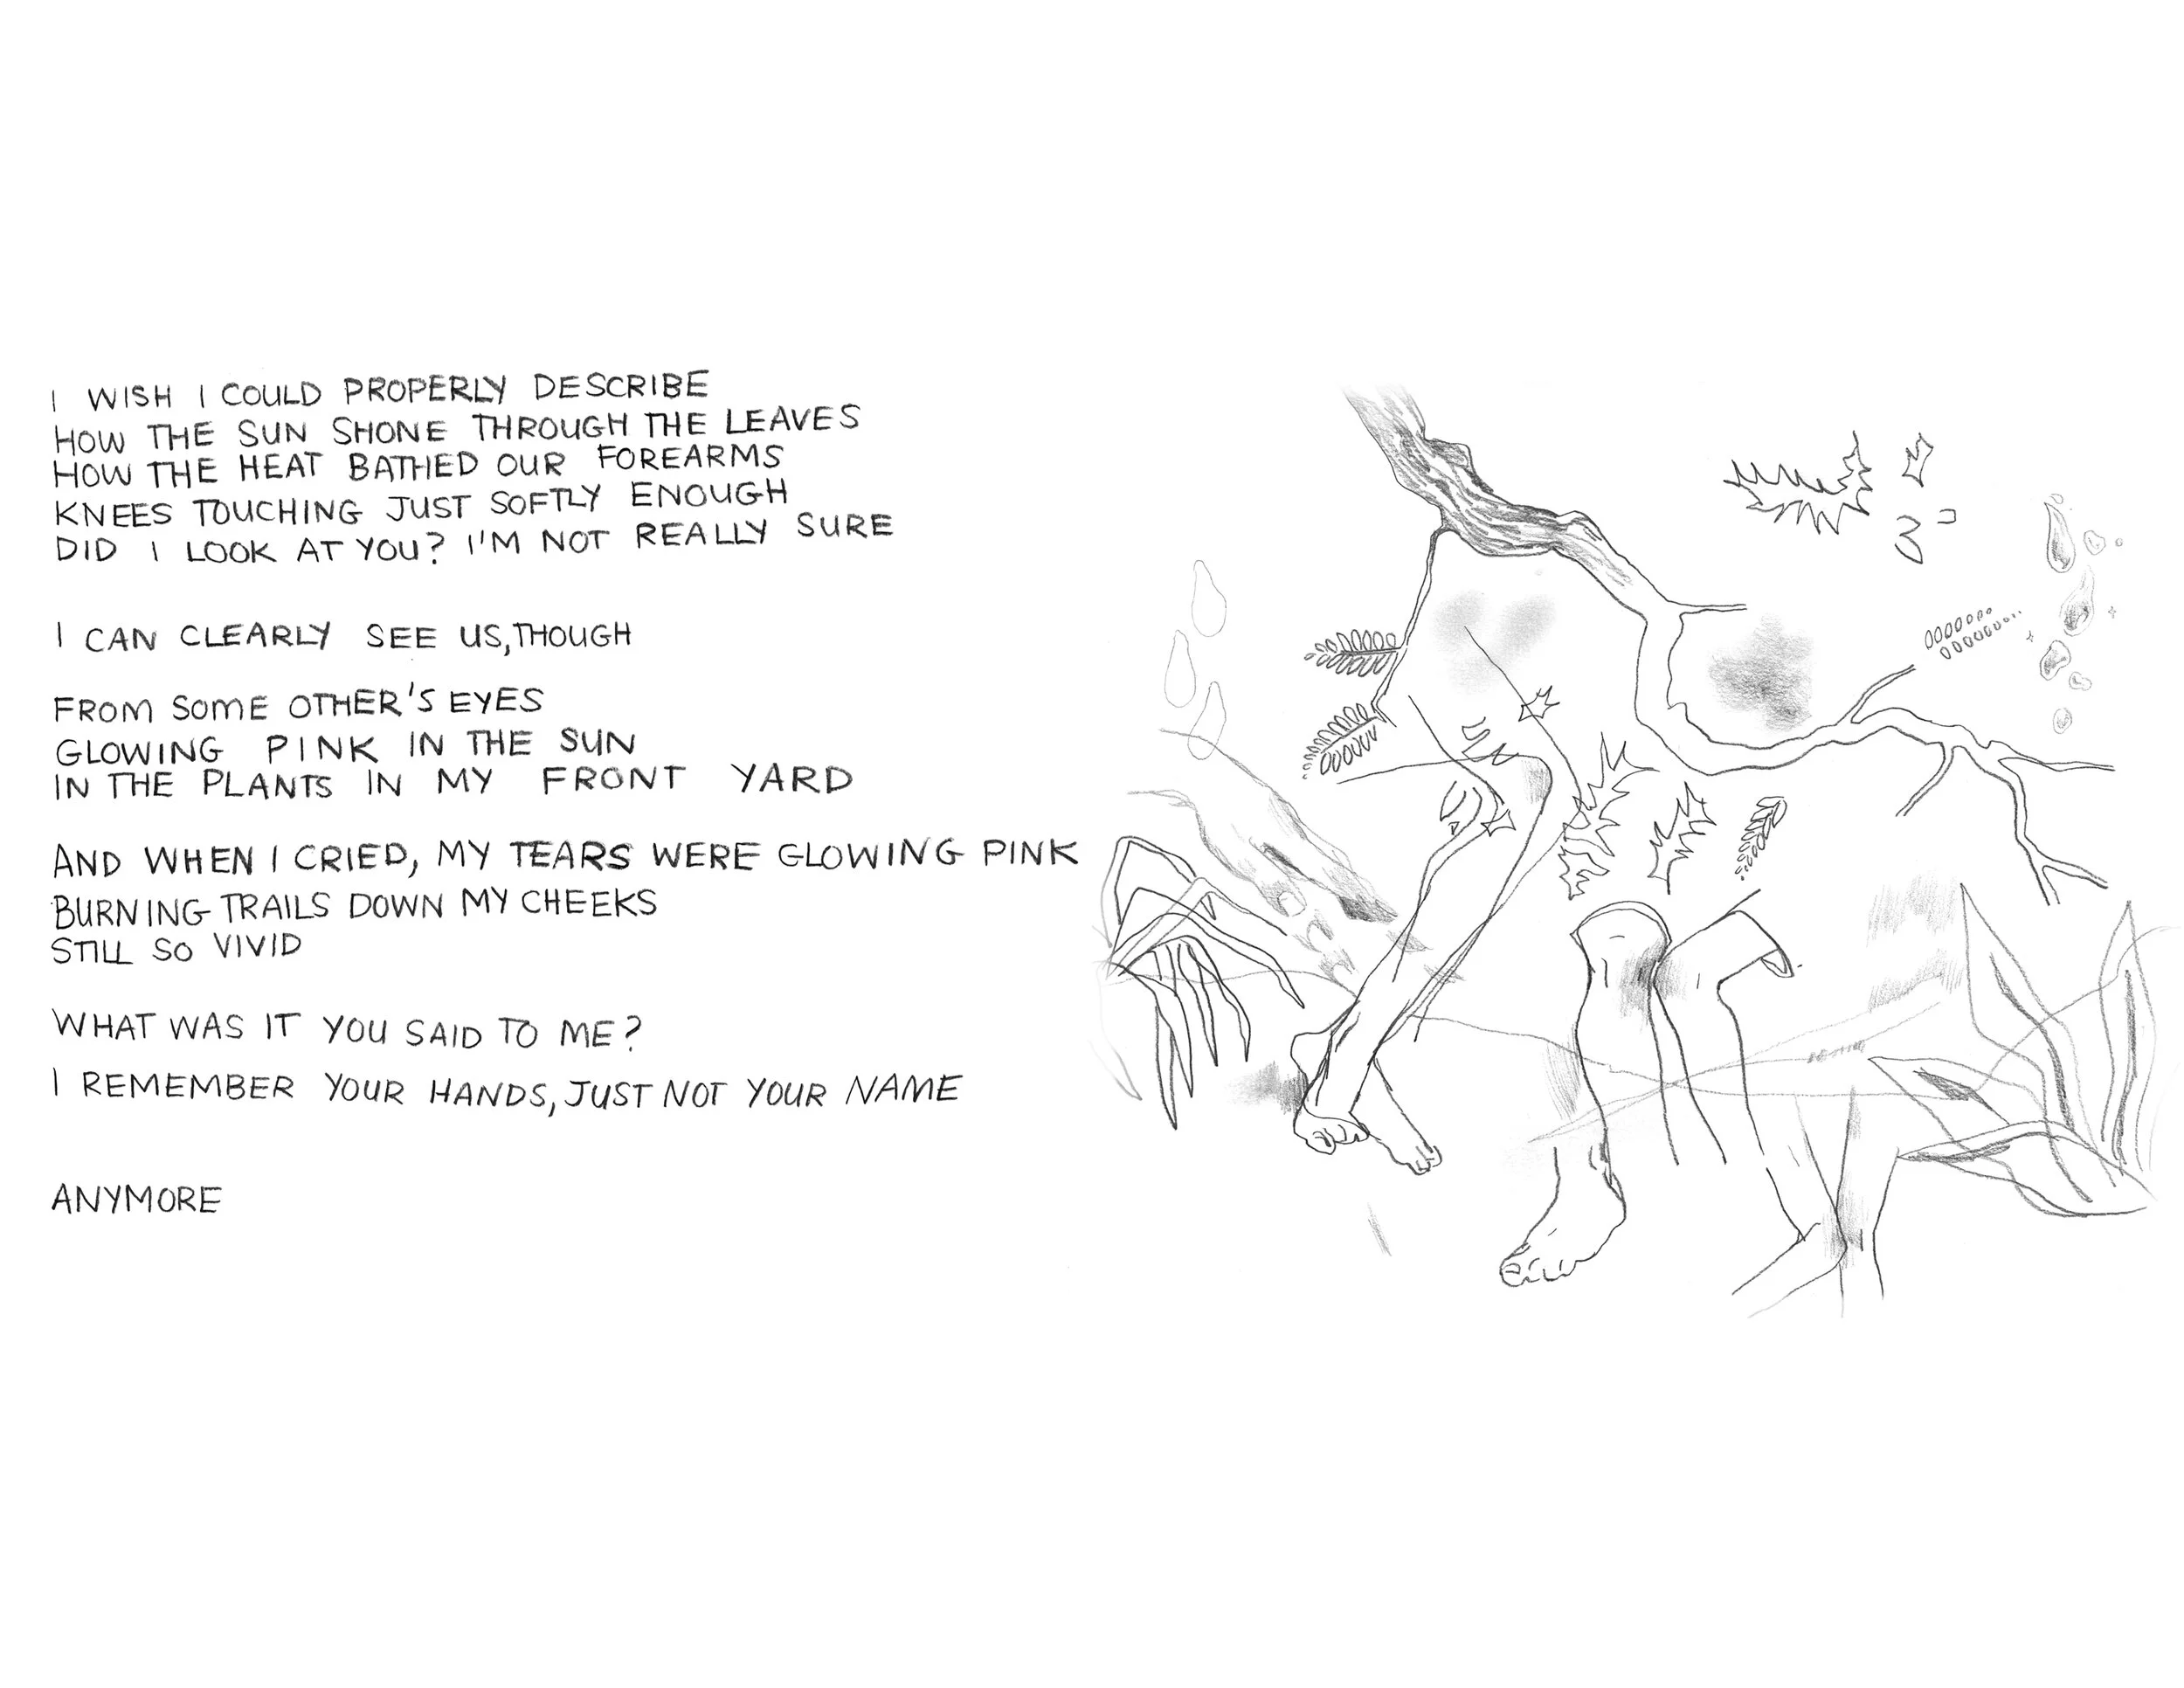 I WISH I COULD PROPERLY DESCRIBE
HOW THE SUN SHONE THROUGH THE LEAVES
HOW THE HEAT BATHED OUR FOREARMS
KNEES TOUCHING JUST SOFTLY ENOUGH
DID I LOOK AT YOU? I'M NOT REALLY SURE
I CAN CLEARLY SEE US, THOUGH
FROM SOME OTHER'S EYES
GLOWING PINK IN THE SUN
IN THE PLANTS IN MY FRONT YARD
AND WHEN I CRIED, MY TEARS WERE GLOWING PINK
BURNING TRAILS DOWN MY CHEEKS
STILL SO VIVID
WHAT WAS IT YOU SAID TO ME?
I REMEMBER YOUR HANDS, JUST NOT YOUR NAME
ANYMORE